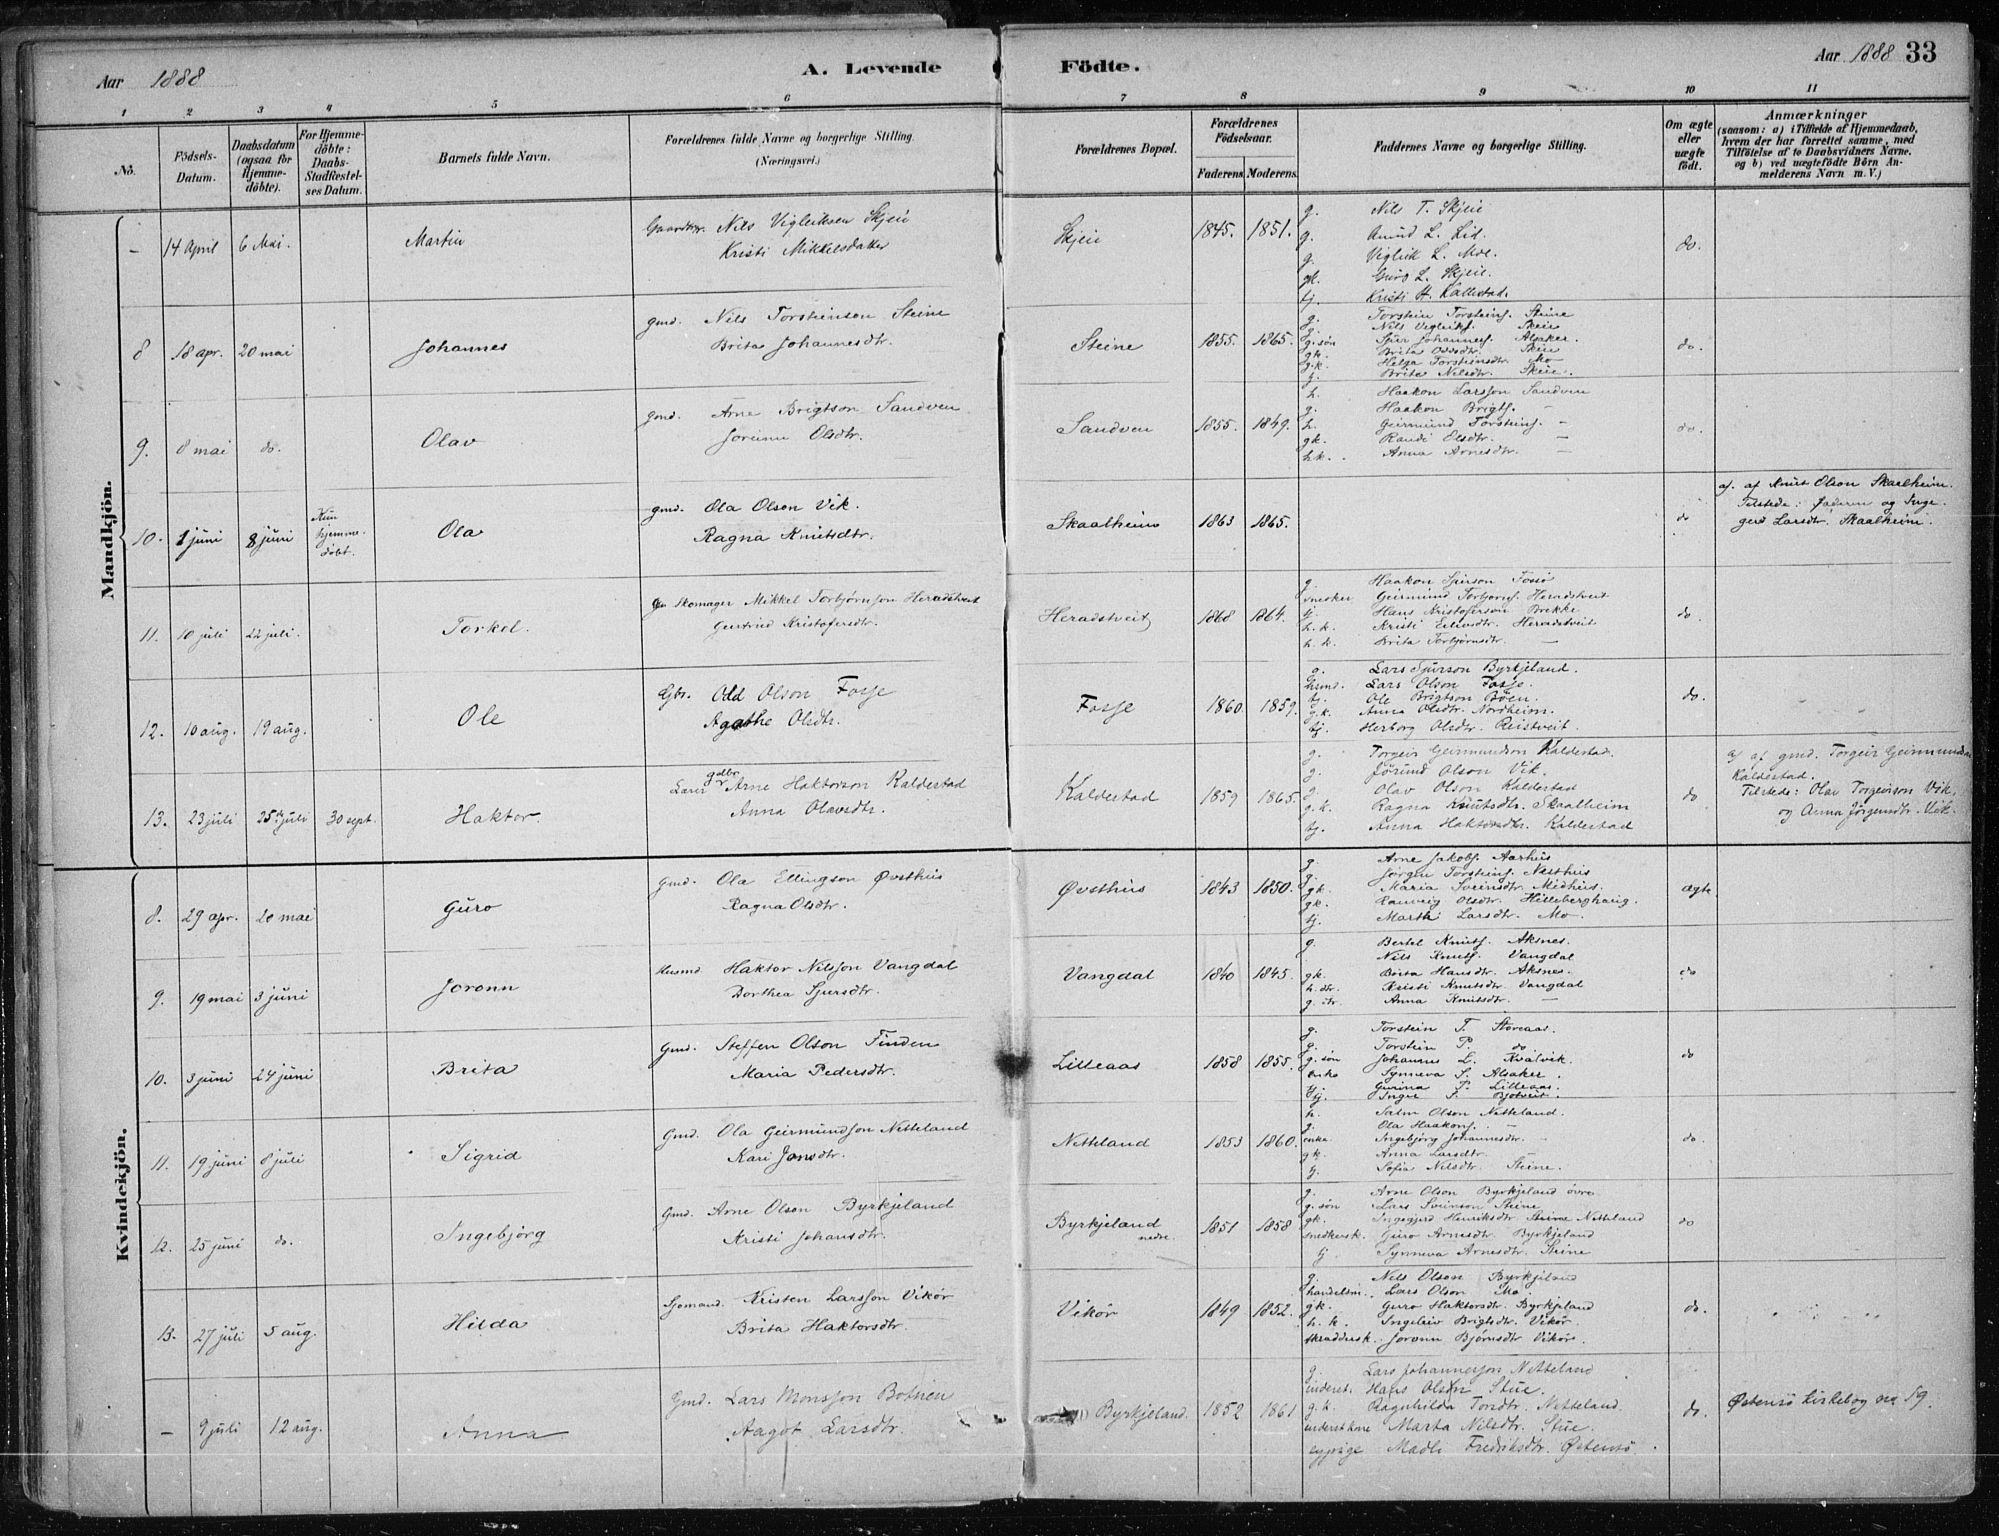 Aar 1888
A. Levende Födte.
Aar 1888 33
1 2 3 4 5 6 7 8 9 10 11
No.
Födsels-Datum.
Daabsdatum (ogsaa for Hjemmedöbte).
For Hjemmedöbte: Daabs-Stadfæstelses Datum.
Barnets fulde Navn.
Forældrenes fulde Navne og borgerlige Stilling.
(Næringsvei.)
Forældrenes Bopæl.
Forældrenes Födselsaar.
Faderens. Moderens.
Faddernes Navne og borgerlige Stilling.
Om ægte eller uægte födt.
Anmærkninger
(saasom: a) i Tilfælde af Hjemmedaab, hvem der har forrettet samme, med Tilföielse af to Daabsvidners Navne, og b) ved uægtefödte Börn Anmelderens Navn m. V.)
Mandkjön.
- 14 April 6 Mai. Martin
Gaardbr. Nils Vigleiksen Skjeie
Kristi Mikkelsdatter
Skjeie 1845. 1851.
g. Nils T. Skjeie
g. Amund L. Lid.
g. Vigleik L. Moe.
gk. Guro L. Skjeie.
tj. Kristi H. Kallestad.
do.
8 18 apr. 20 mai Johannes
gmd. Nils Torsteinson Steine
Brita Johannesdtr.
Steine 1855. 1865.
g. Torstein Torsteins. Steine
g. Nils Vigleiks. Skeie
g. søn Sjur Johannes. Alsaker.
gk. Brita Olsdtr. Skeie
g.k. Helga Torsteinsdtr. Mo
tj. Brita Nilsdtr. Skeie.
do.
9. 8 mai do. Olav
gmd. Arne Brigtson Sandven
Jorunn Olsdtr.
Sandven 1855. 1849.
h. Haakon Larsson Sandven
g. Haakon Brigts. -
h. Geirmund Torsteins. -
gk. Randi Olsdtr. -
h.k. Anna Arnesdtr. -
do.
10. 1 juni 8 juni Kun hjemmedöbt. Ola
gmd. Ola Olson Vik.
Ragna Knutsdtr.
Skaalheim 1863 1865.
do
a). af Knut Olson Skaalheim.
Tilstede: Faderen og Inge-
gerd Larsdtr. Skaalheim.
11. 10 juli 22 juli. Torkel.
Skomager Mikkel Torbjørnson Heradstveit
Gjertrud Kristofersdtr.
Heradstveit 1868 1864.
g. Haakon Sjurson Fosse
snedker Geirmund Torbjørns. Heradstveit
tj. Hans Kristoferson Brekke
h.k. Kristi Eilivsdtr. Heradstveit
h.k. Brita Torbjørnsdtr. -
do.
12. 10 aug. 19 aug. Ole
Gbr. Odd Olson Fosse
Agathe Olsdtr.
Fosse 1860. 1859.
g. Lars Sjurson Byrkjeland.
husmd. Lars Olson Fosse.
tj. Ole Brigtson Bøen.
g.k. Anna Olsdtr. Nordheim.
tj. Herborg Olsdtr. Reistveit.
do.
13. 23 juli 25de juli 30 sept. Haktor
Lars gdbr. Arne Haktorson Kaldestad
Anna Olavsdtr.
Kaldestad 1859 1865.
g. Torgeir Geirmundson Kaldestad
g. Jörund Olson Vik.
g. Olav Olson Kaldestad
g.k. Ragna Knutsdtr. Skaalheim
tj. Anna Haktorsdtr. Kaldestad
do
a) af gmd. Torgeir Geirmundson
Kaldestad.
Tilstede: Olav Torgeirson Vik,
og Anna Jörgensdtr. Vik.
Kvindekjön.
8. 29 apr. 20 mai Guro
Gmd. Ola Ellingson Øvsthus
Ragna Olsdtr.
Øvsthus 1843 1850.
g. Arne Jakobs. Aarhus
g. Jörgen Torsteins. Nesthus
gk. Maria Sveinsdtr. Midhus.
gk. Ranveig Olsdtr. Hilleberghaug.
tj. Marthi Larsdtr. Mo.
ægte
9. 19 mai 3 juni Joronn
Husmd Haktor Nilsson Vangdal
Dorthea Sjursdtr.
Vangdal 1840 1845.
g. Bertel Knuts. Aksnes.
Nils Knuts. Vangdal
gk. Brita Hansdtr. Aksnes.
h. dtr. Kristi Knutsdtr. Vangdal
g. dtr. Anna Knutsdtr. -
do
10. 3 juni 24 juni Brita
Gmd. Steffen Olson Tinden
Maria Pedersdtr.
Lilleaas 1858 1855.
g. Torstein T. Storeaas.
g. Torstein P. do.
g. søn Johannes L. Kvalvik.
enke Synneva S. Alsaker.
tj. Gurina P. Lilleaas.
tj. Inger P. Bjotveit.
do
11. 19 juni 8 juli Sigrid
Gmd. Ola Geirmundson Netteland
Kari Jonsdtr.
Netteland 1853 1860.
h. Salm Olson Netteland.
g. Ola Haakons. -
enke Ingebjörg Johannesdtr. -
gk. Anna Larsdtr. -
tj. Sofia Nilsdtr. Steine.
do.
12. 25 juni do. Ingebjörg
Gmd. Arne Olson Byrkjeland
Kristi Johansdtr.
Byrkjeland nedre. 1851 1858
g. Arne Olson Byrkjeland övre
g. søn Lars Sveinson Steine
gk. Ingegjerd Henriksdtr. Steine Netteland
snedkersk. Guro Arnesdtr. Byrkjeland
tj Synneva Arnesdtr. Steine
do
13. 27 juli 5 aug. Hilda
Sjomand. Kristen Larsson Vikør
Brita Haktorsdtr.
Vikør 1849 1852.
g. Nils Olson Byrkjeland
handelsm. Lars Olson Mo.
gk. Guro Haktorsdtr. Byrkjeland
h.k. Ingeleiv Brigtsdtr. Vikør.
skraddersk. Joronn Bjørnsdtr Vikør.
do.
- 9 juli 12 aug. Anna
Gmd. Lars Monsson Botnen
Aagot Larsdtr.
Byrkjeland. 1852 1861
g. Lars Johannesson Netteland
inderst. Hans Olson Stue.
g.k. Ragnhilda Tordtr. Netteland.
inderstkone Marta Nilsdtr. Stue.
ugivt pige Madli Fredriksdtr. Østensö.
do.
Østensö kirkebog no 19.